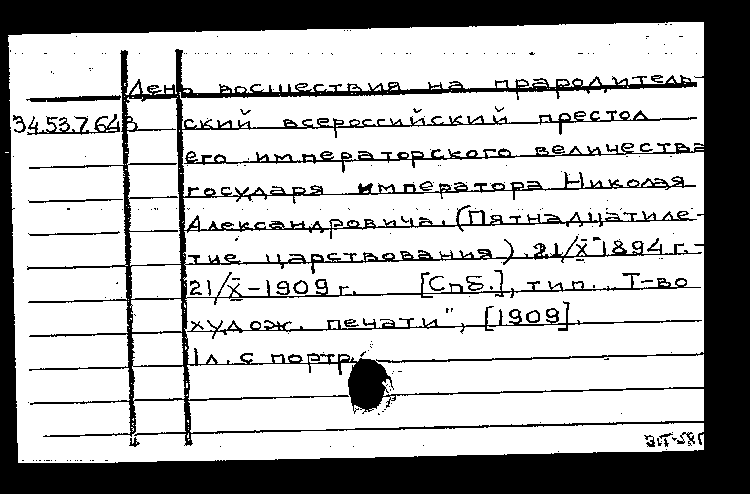 День восшествия на прародитель-
34.53.7.643 ский всероссийский престол
его императорского величества
государя императора Николая
Александровича. (Пятнадцатиле-
тие царствования). 21/X 1894 г.-
21/X-1909 г. [Спб.], тип. „Т-во
худож. печати", [1909].
1 л. с портр.